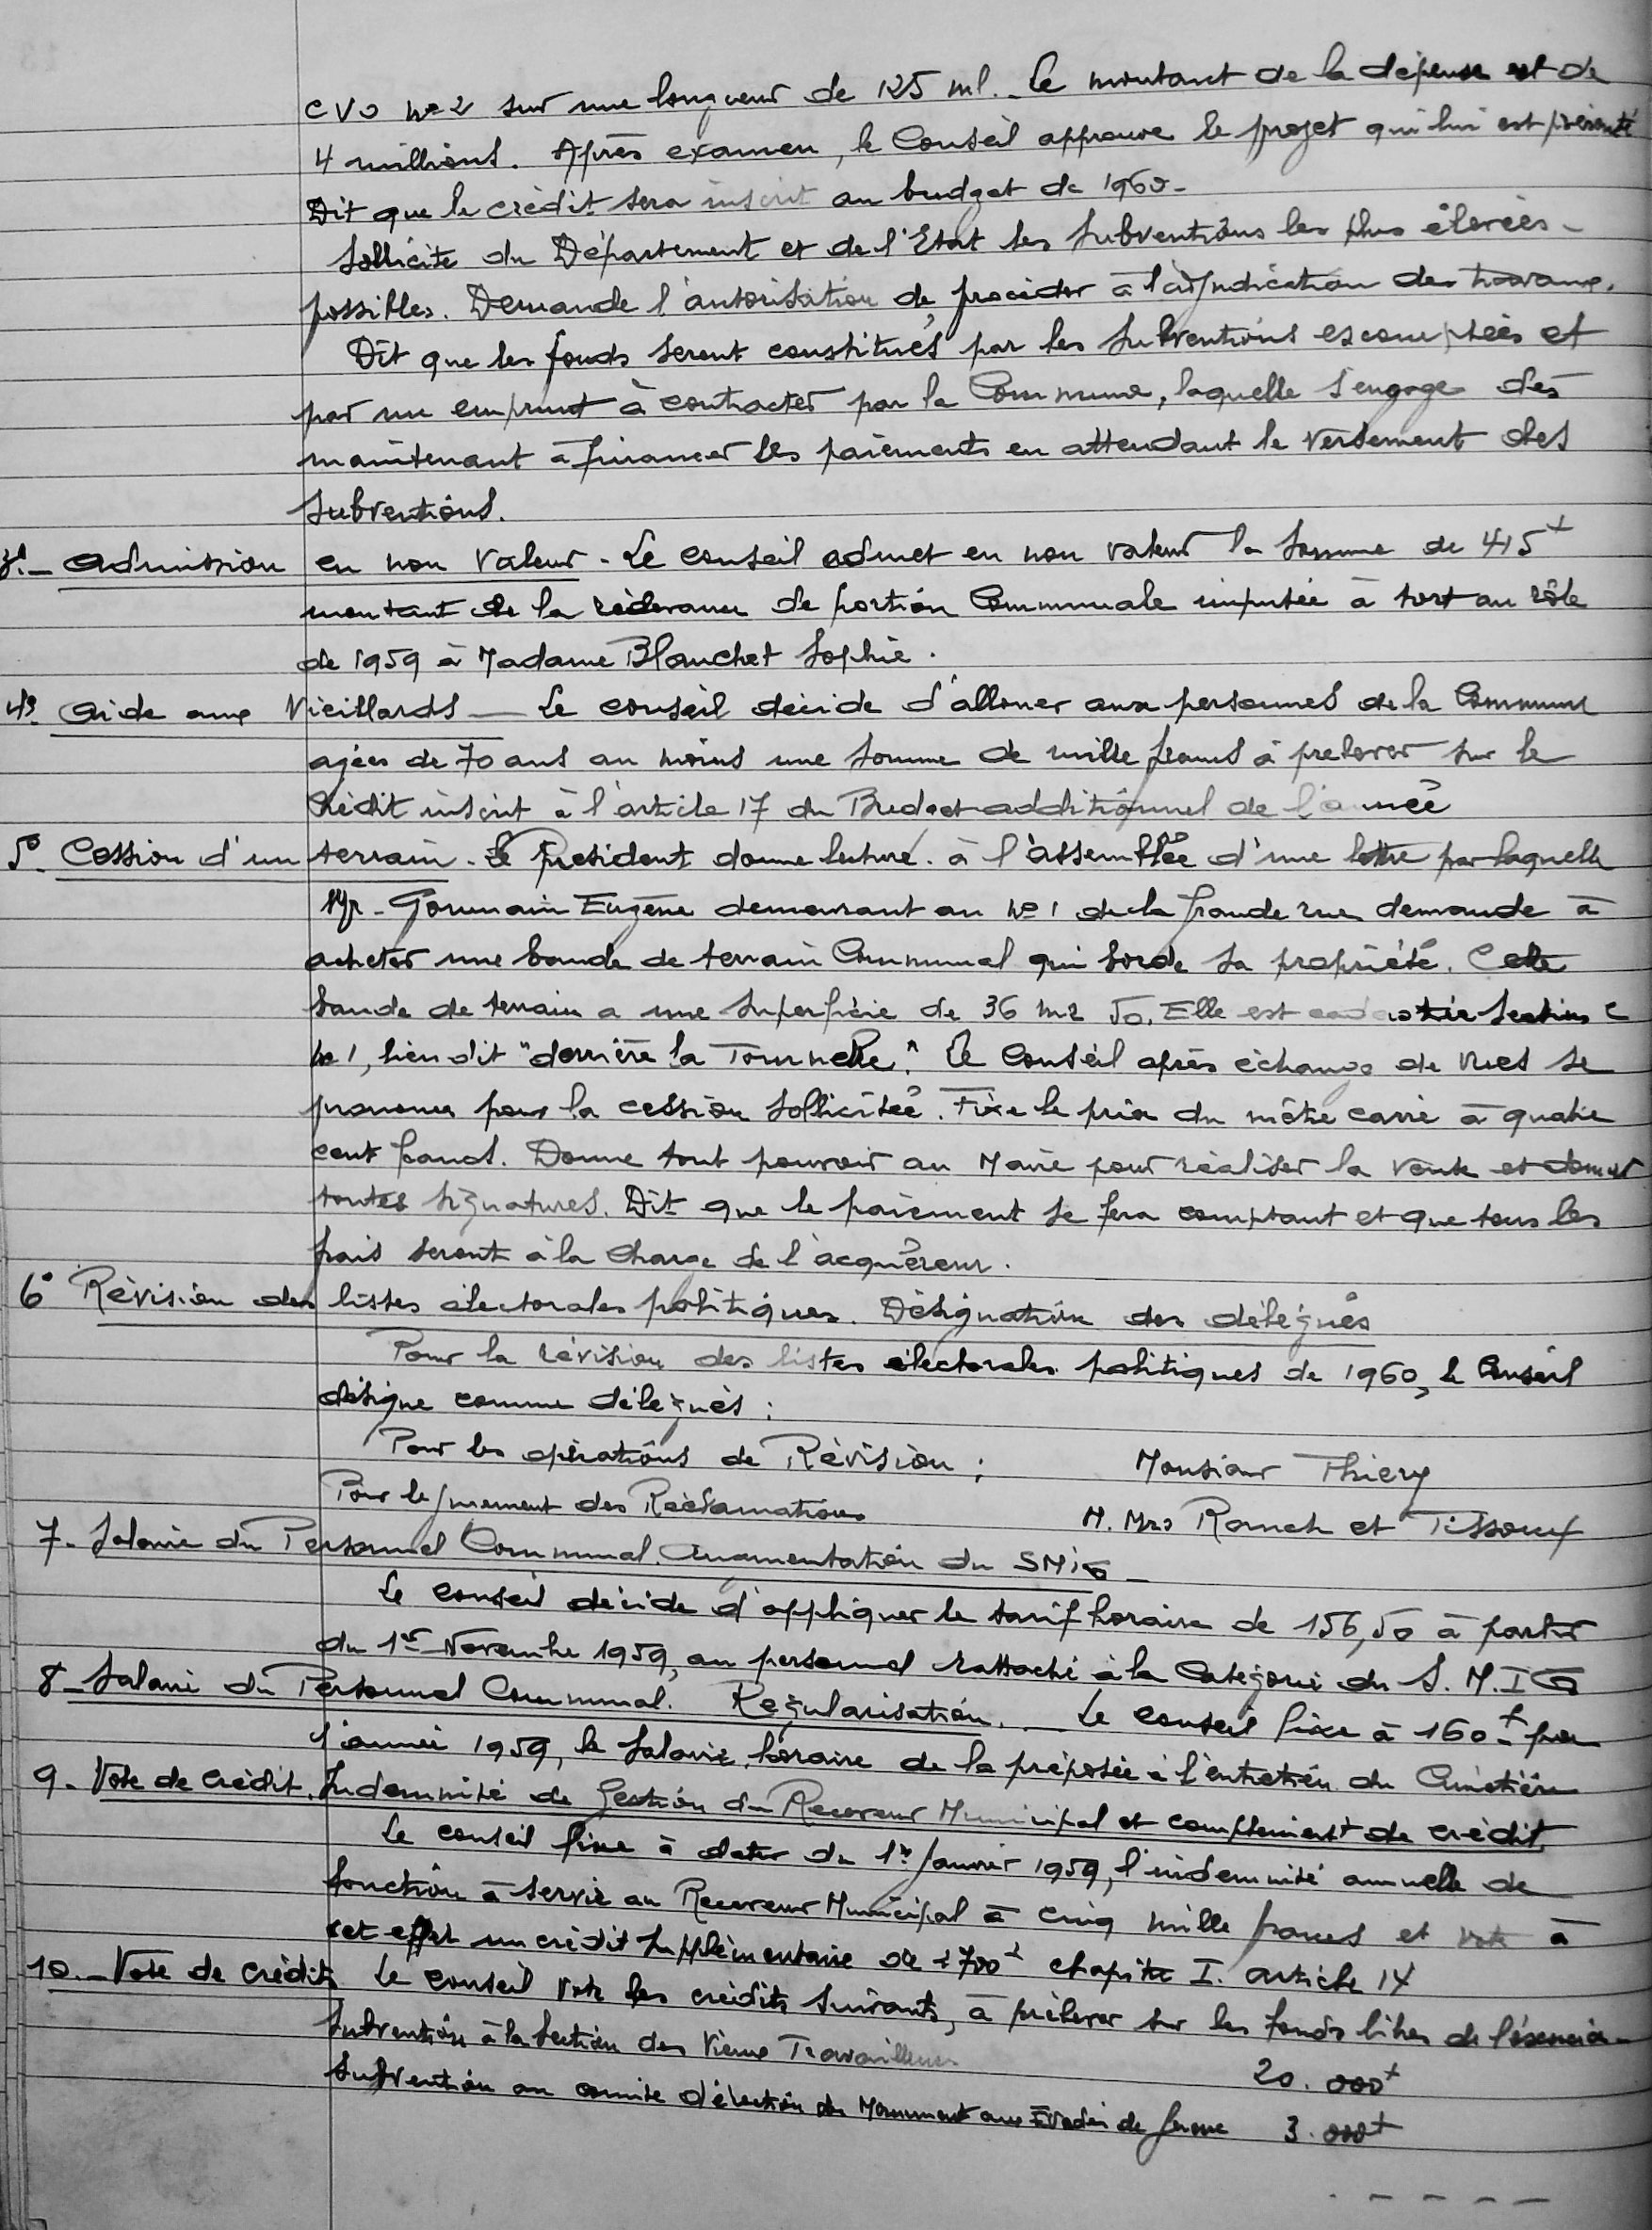 CVO n° 2 sur une longueur de 125 ml. Le montant de la dépense est de
4 millions. Après examen, le Conseil approuve le projet qui lui est présenté
Dit que le crédit sera inscrit au budget de 1960.
Sollicite du Département et de l'Etat les subventions les plus élevées
possibles. Demande l'autorisation de procéder à l'adjudication des travaux.
Dit que les fonds seront constitués par les subventions escomptées et
par un emprunt à contracter par la Commune, laquelle s'engage dès
maintenant à financer les paiements en attendant le versement des
subventions.
3° - Admission en non valeur - Le conseil admet en non valeur la somme de 415 f
montant de la redevance de portion Communale imputée à tort au rôle
de 1959 à Madame Blanchet Sophie.
4° Aide aux Vieillards - Le conseil décide d'allouer aux personnes de la Commune
agées de 70 ans au moins une somme de mille francs à prelever sur le
Crédit inscrit à l'article 17 du Budget additionnel de l'année
5° Cession d'un terrain - Le Président donne lecture à l'assemblée d'une lettre par laquelle
Mr. Germain Eugène demeurant au n° 1 de la grande rue demande à
acheter une bande de terrain Communal qui borde sa propriété. Cette
bande de terrain a une superficie de 36 m2 50. Elle est cadastrée section C
n° 1, lieu dit "derrière la Tournelle". Le Conseil après échange de vues se
prononce pour la cession sollicitée. Fixe le prix du mètre carré à quatre
cent francs. Donne tout pouvoir au Maire pour réaliser la vente et donner
toutes signatures. Dit que le paiement se fera comptant et que tous les
frais seront à la charge de l'acquéreur.
6° Révision des listes électorales politiques. Désignation des délégués
Pour la révision des listes électorales politiques de 1960, le Conseil
désigne comme délégués :
Pour les opérations de Révision : Monsieur Thiery
Pour le jugement des Réclamations M. Mrs Rauch et Tissoux
7 - Salaire du Personnel Communal. Augmentation du SMIG -
Le conseil décide d'appliquer le tarif horaire de 156,50 à partir
du 1er Novembre 1959, au personnel rattaché à la Catégorie du S.M.I.G
8 - Salaire du Personnel Communal. Régularisation. - Le conseil fixe à 160 f pour
l'année 1959, le salaire horaire de la préposée à l'entretien du Cimetière
9 - Vote de crédit. Indemnité de Gestion du Receveur Municipal et complément de crédit
Le conseil fixe à dater du 1er Janvier 1959, l'indemnité annuelle de
fonction à servir au Receveur Municipal à cinq mille francs et vote à
cet effet un crédit supplémentaire de 2700 f chapitre I. article 14
10. - Vote de crédits Le conseil vote les crédits suivants, à prélever sur les fonds libres de l'exercice -
Subvention à la Section des Vieux Travailleurs 20.000 f
Subvention au comité d'érection du Monument aux Evadés de guerre 3.000 f